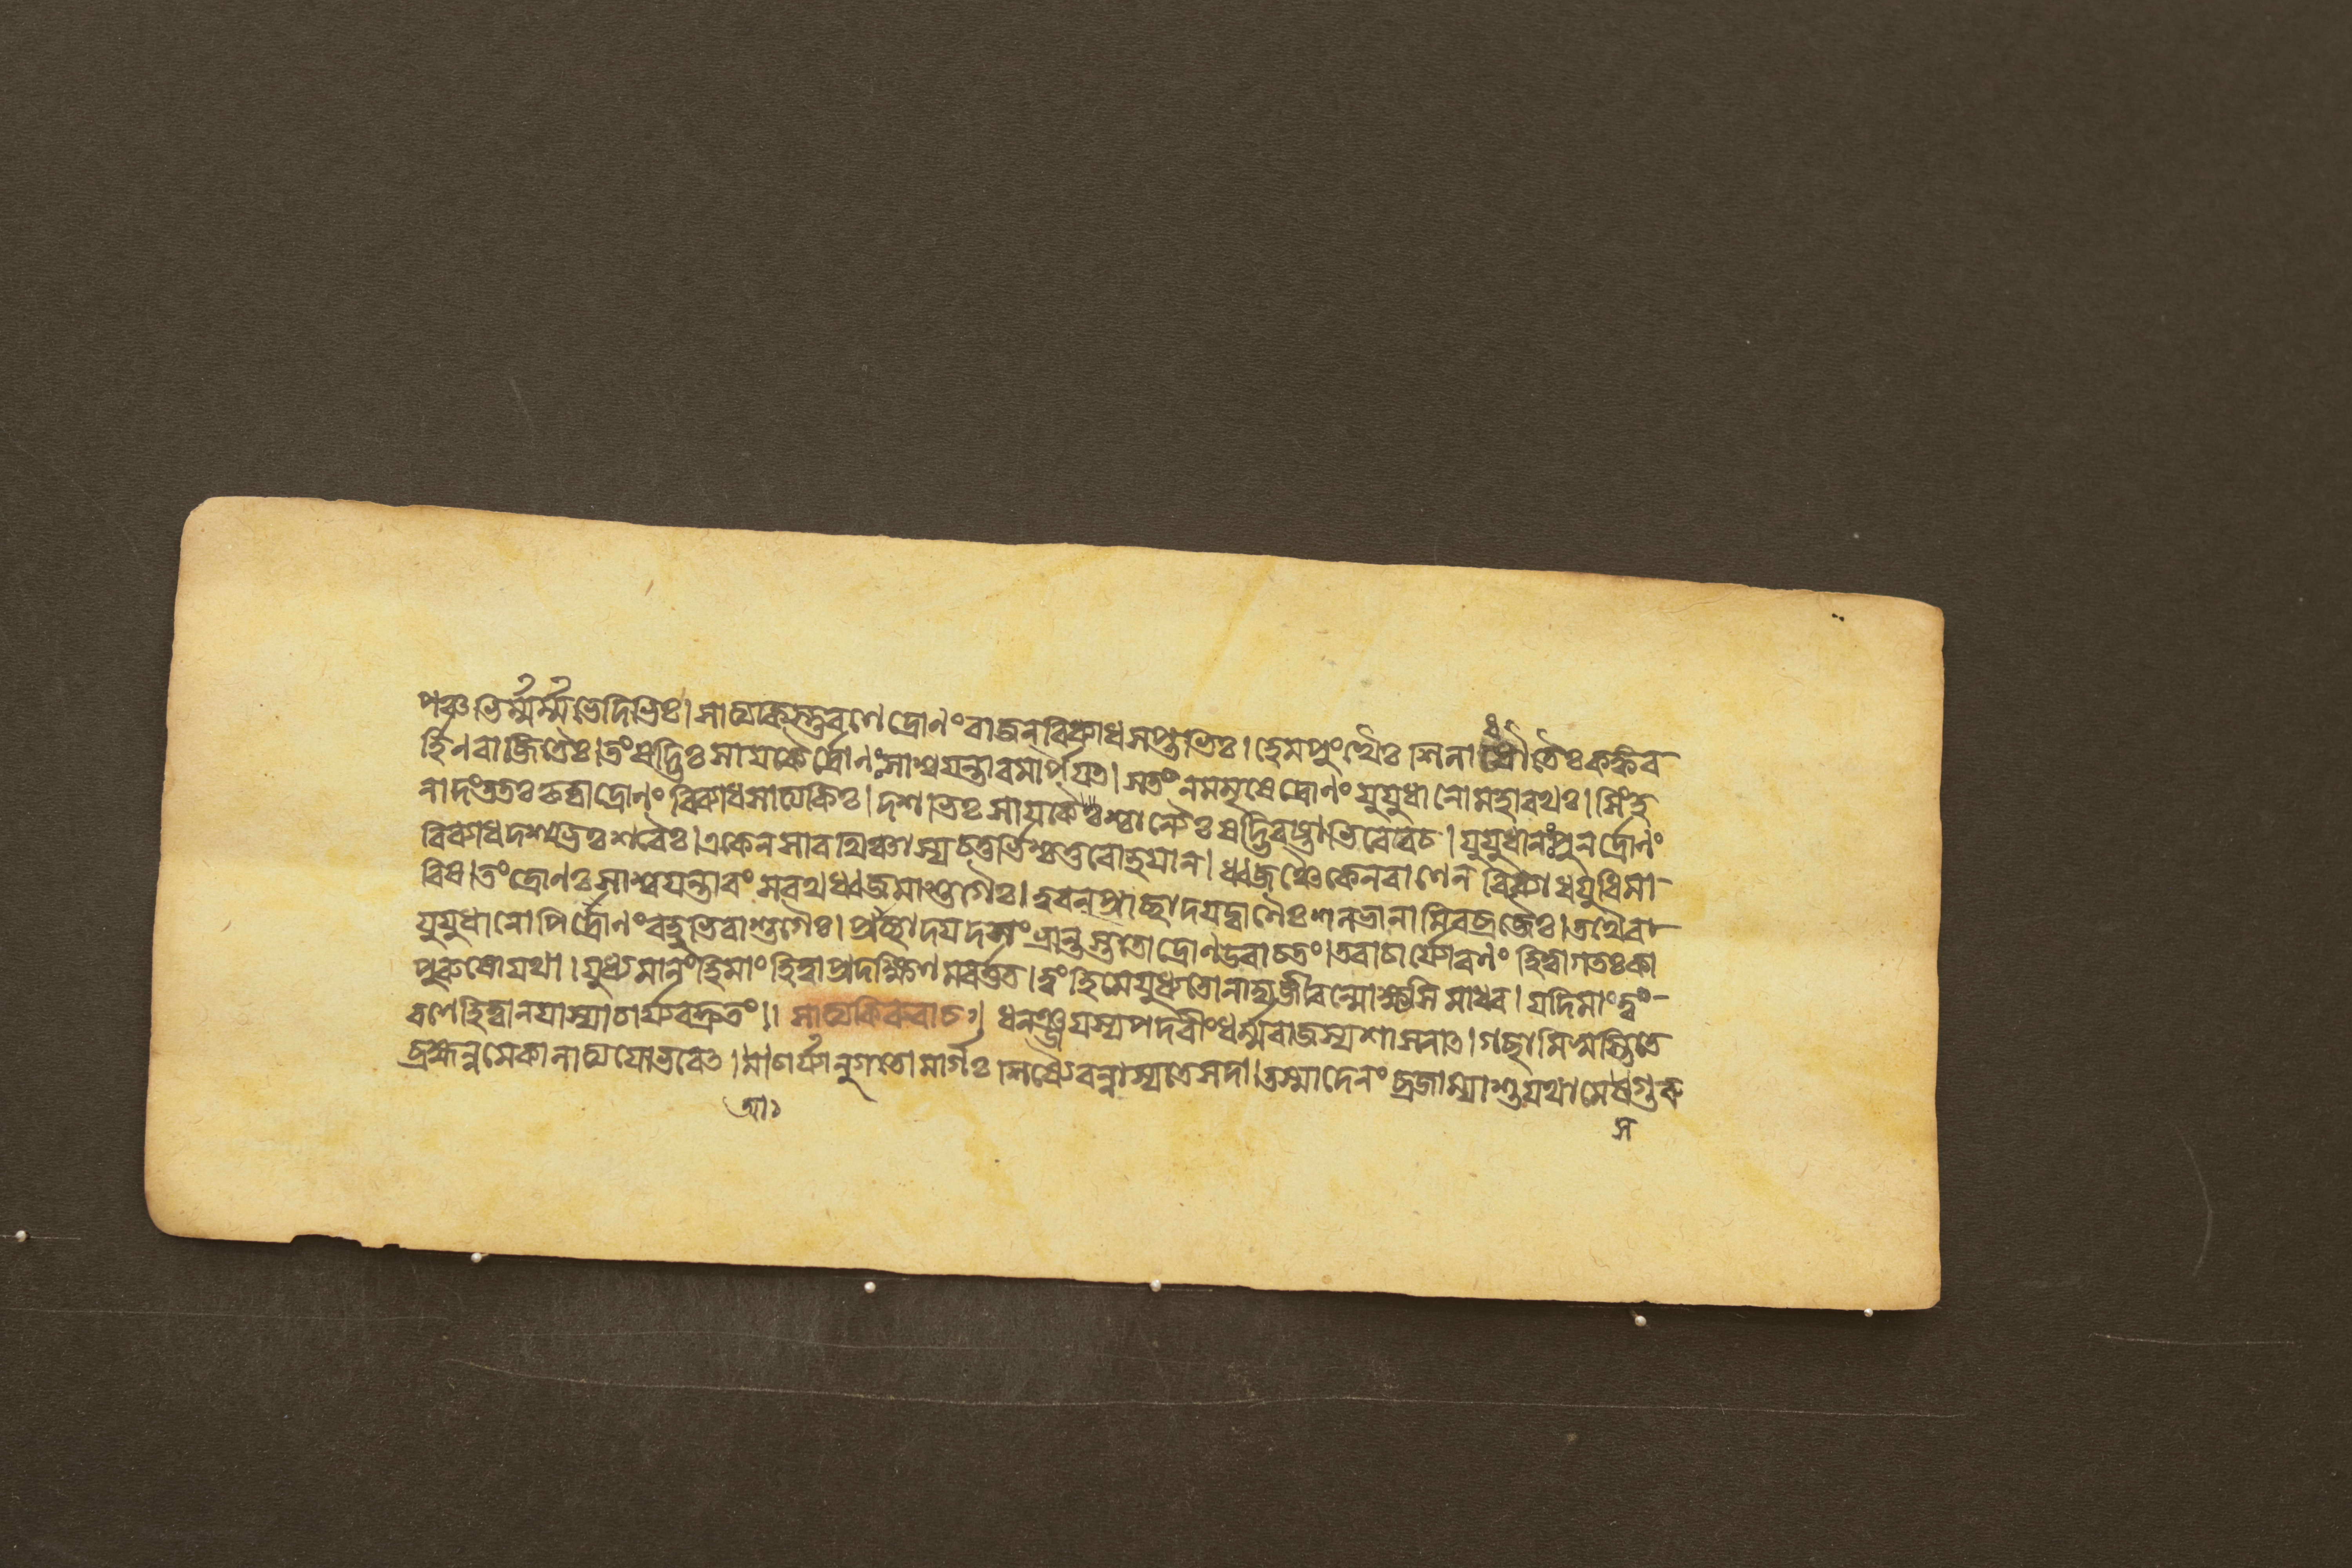 পঞ্চভির্ম্মর্ম্মভেদিভিঃ। সাত্যকিস্তুরণে দ্রোণং রাজন্ বিব্যাধ সপ্তভিঃ। হেমপুংখৈঃ শিলাধৌতৈঃ কঙ্কব
র্হিণবাজিতৈঃ। তং ষড্ভিঃ সায়কৈর্দ্রোণঃ সাশ্বযন্তারমার্পয়ৎ। স তং ন মমৃষে দ্রোণং যুযুধানো মহারথঃ। সিংহ
নাদং ততঃ কৃত্বা দ্রোণং বিব্যাধ সাত্যকিঃ। দশভিঃ সায়কৈশ্চান্যৈঃ ষড্ভিরষ্টাভিরেব চ। যুযুধানঃ পুনর্দ্রোণং
বিব্যাধ দশভিঃ শরৈঃ। একেন সারথিঞ্চাস্য চতুর্ভিশ্চতুরো হয়ান্। ধ্বজঞ্চৈকেন বাণেন বিব্যাধ যুধি মা
রিষ। তং দ্রোণঃ সাশ্বযন্তারং সরথধ্বজমাশুগৈঃ। ত্বরন্ প্রাচ্ছাদয়দ্বাণৈঃ শলভানামিব ব্রজৈঃ। তথৈব
যুযুধানোপি দ্রোণং বহুভিরাশুগৈঃ। প্রাচ্ছাদয়দসংভ্রান্তস্ততো দ্রোণ উবাচ তং। তবাচার্য্যো রণং হিত্বা গতঃ কা
পুরুষো যথা। যুধ্যমানং হি মাং হিত্বা প্রদক্ষিণমবর্ত্তত। ত্বং হি মে যুধ্যতো নাদ্য জীবন্মোক্ষ্যসি মাধব। যদি মাং ত্বং
রণে হিত্বা ন যাস্যাচার্য্যবদ্দ্রুতং।। সাত্যকিরুবাচ।। ধনঞ্জয়স্য পদবীং ধর্ম্মরাজস্য শাসনাৎ। গচ্ছামি স্বস্তি তে
ব্রহ্মন্ন মে কালাত্যয়ো ভবেৎ। আচার্য্যানুগতো মার্গঃ শিষ্যৈরন্বাস্যতে সদা। তস্মাদেনং ব্রজাম্যাশু যথা মে স গুরু
স